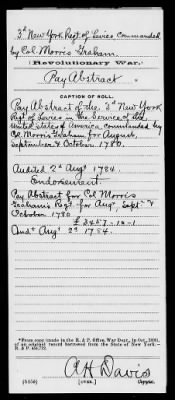 3d New York Regt of Levies Commanded
by Col Morris Graham.
(Revolutionary War.)
Pay Abstract
CAPTION OF ROLL.
Pay Abstract of the 3d New York
Regt of Levies in the Service of the
United States of America commanded by
Col. Morris Graham for August,
September & October 1780.
Audited 2d Augt 1784.
Endorsement.
Pay Abstract for Col Morris
Graham's Regt for Augt Sept &
October 1780
£ 3457-12-1
Aud. Augt 2d 1784.
*From copy made in the R. & P. Office, War Dept., in Oct., 1893,
of an original record borrowed from the State of New York.—
R. & P. 436,772.
A H Davis
(565b) Copyist.